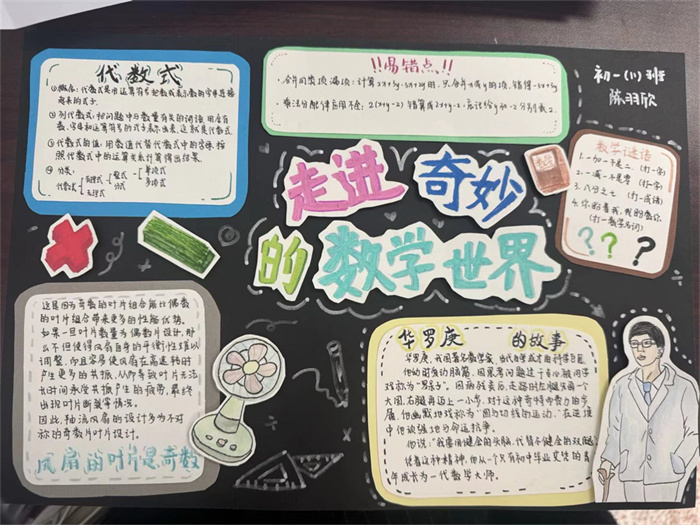 代数式
①概念:代数式是由运算符号把数或表示数的字母连接
起来的式子.
②列代数式:把问题中与数量有关的词语,用含有
数、字母和运算符号的式子表示出来,这就是代数式
③代数式的值:用数值代替代数式中的字母,按
照代数式中的运算关系计算得出结果.
④分类:
代数式 有理式 整式 单项式
多项式
分式
无理式
!!易错点!!
·合并同类项漏项:计算2x+3y-5x+2y时,只合并x或y的项,错得-3x+5y
·乘法分配律应用不全:2(x+y-2)错算成2x+y-2,忘记给y和-2分别乘2.
初一(11)班
陈羽欣
走进 奇妙
的 数学 世界
数学
数学谜语
1.一加一不是二 (打一字)
2.一减一不是零 (打一字)
3.八分之七 (打一成语)
4.你盼着我,我盼着你
(打一数学名词)
? ? ?
这是因为奇数的叶片组合能比偶数
的叶片组合带来更多的性能优势,
如果一旦叶片数量为偶数片设计,那
么不但使得风扇自身的平衡性难以
调整,而且容易使风扇在高速转时
产生更多的共振,从而导致叶片无法
长时间承受共振产生的疲劳,最终
出现叶片断裂等情况。
因此,轴流风扇的设计多为不对
称的奇数片叶片设计。
风扇的叶片是奇数
华罗庚 的故事
华罗庚,我国著名数学家,当代自学成才的科学巨匠
他幼时爱动脑筋,因思考问题过于专心被同学
戏称为“罗呆子”。因病残疾后,走路时左腿先画一个
大圆,右腿再迈上一小步.对于这种奇特而费力的步
履,他幽默地戏称为“圆与切线的运动.”在逆境
中他顽强地与命运抗争。
他说:“我要用健全的头脑,代替不健全的双腿!”
凭着这种精神,他从一个只有初中毕业文凭的青
年成长为一代数学大师。